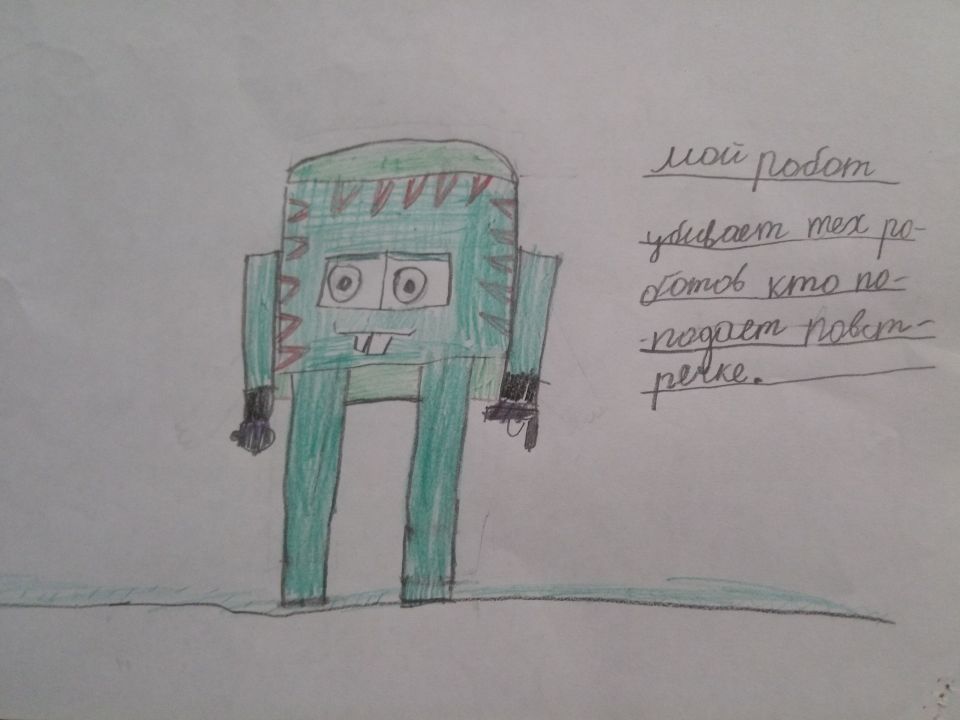 мой робот
убивает тех ро-
ботов кто по-
-подает повст-
речке.